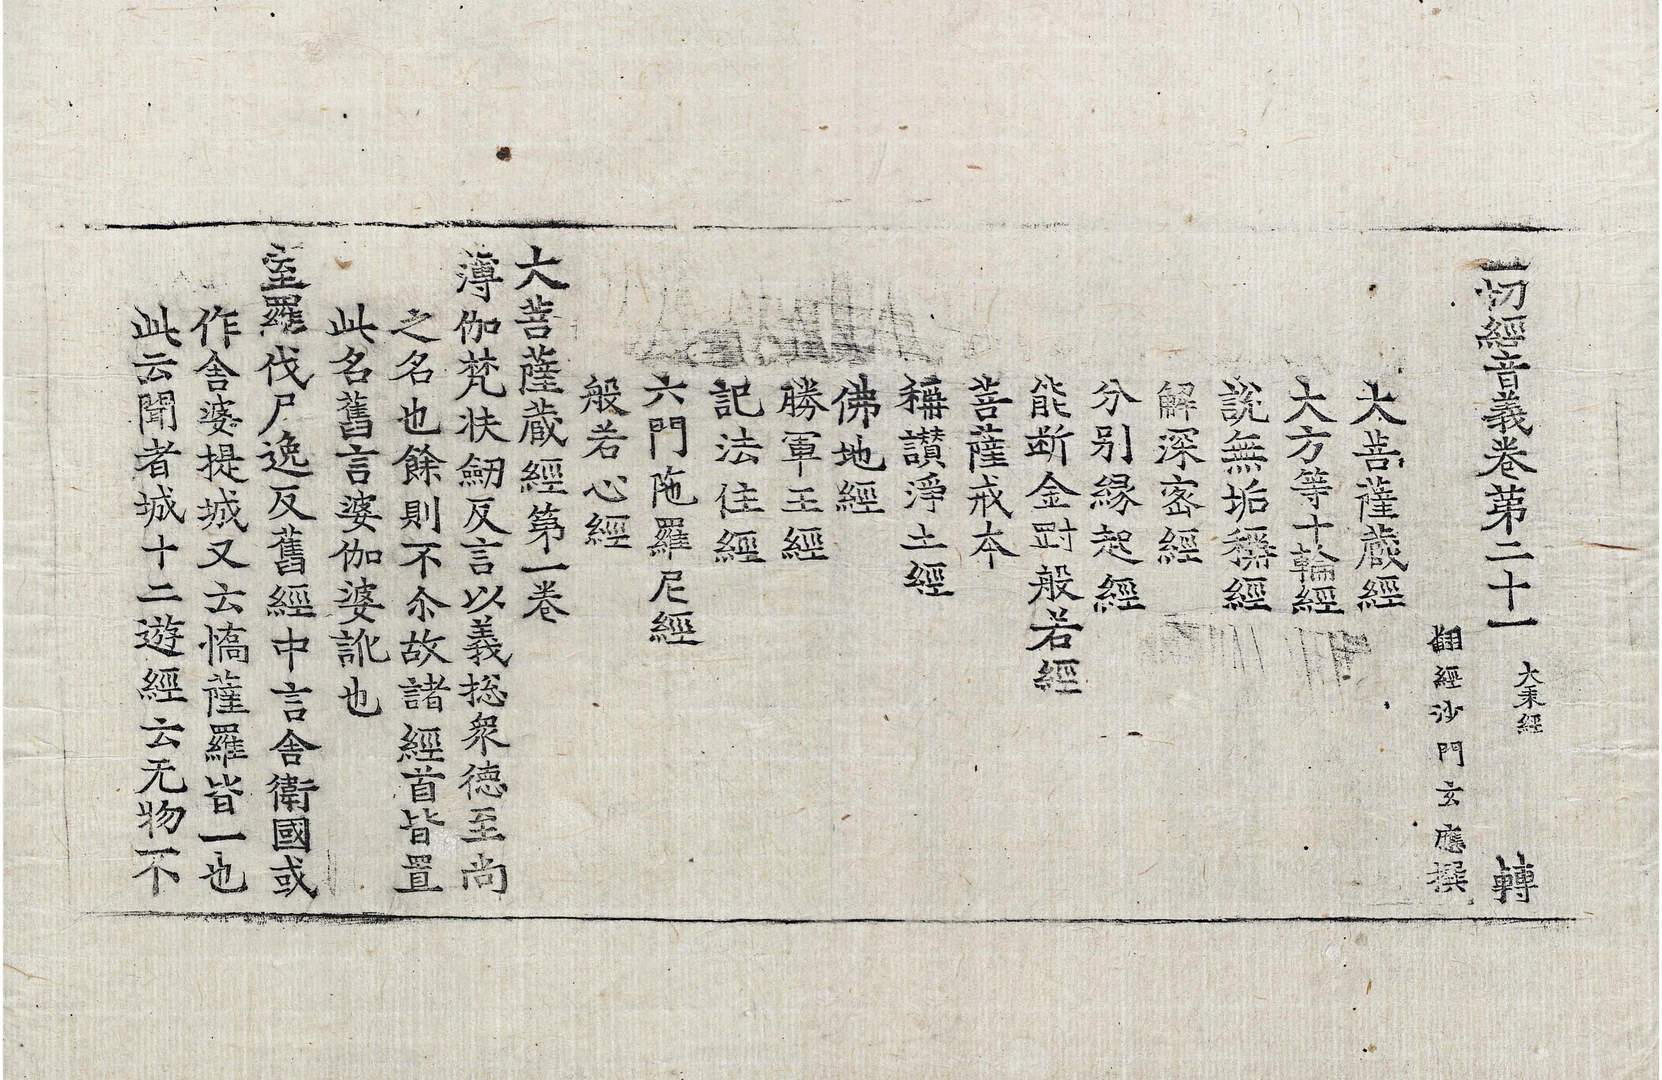 一切經音義卷第二十一 大乗經 轉
翻經沙門玄應撰
大菩薩藏經
大方等十輪經
說無垢稱經
解深密經
分別緣起經
能断金剛般若經
菩薩戒本
稱讃淨土經
佛地經
勝軍王經
記法住經
六門陁羅尼經
般若心經
大菩薩藏經第一卷
薄伽梵扶劒反言以義揔衆德至尚
之名也餘則不尒故諸經首皆置
此名舊言婆伽婆訛也
室羅伐尸逸反舊經中言舍衛國或
作舍婆提城又云憍薩羅皆一也
此云聞者城十二遊經云无物不